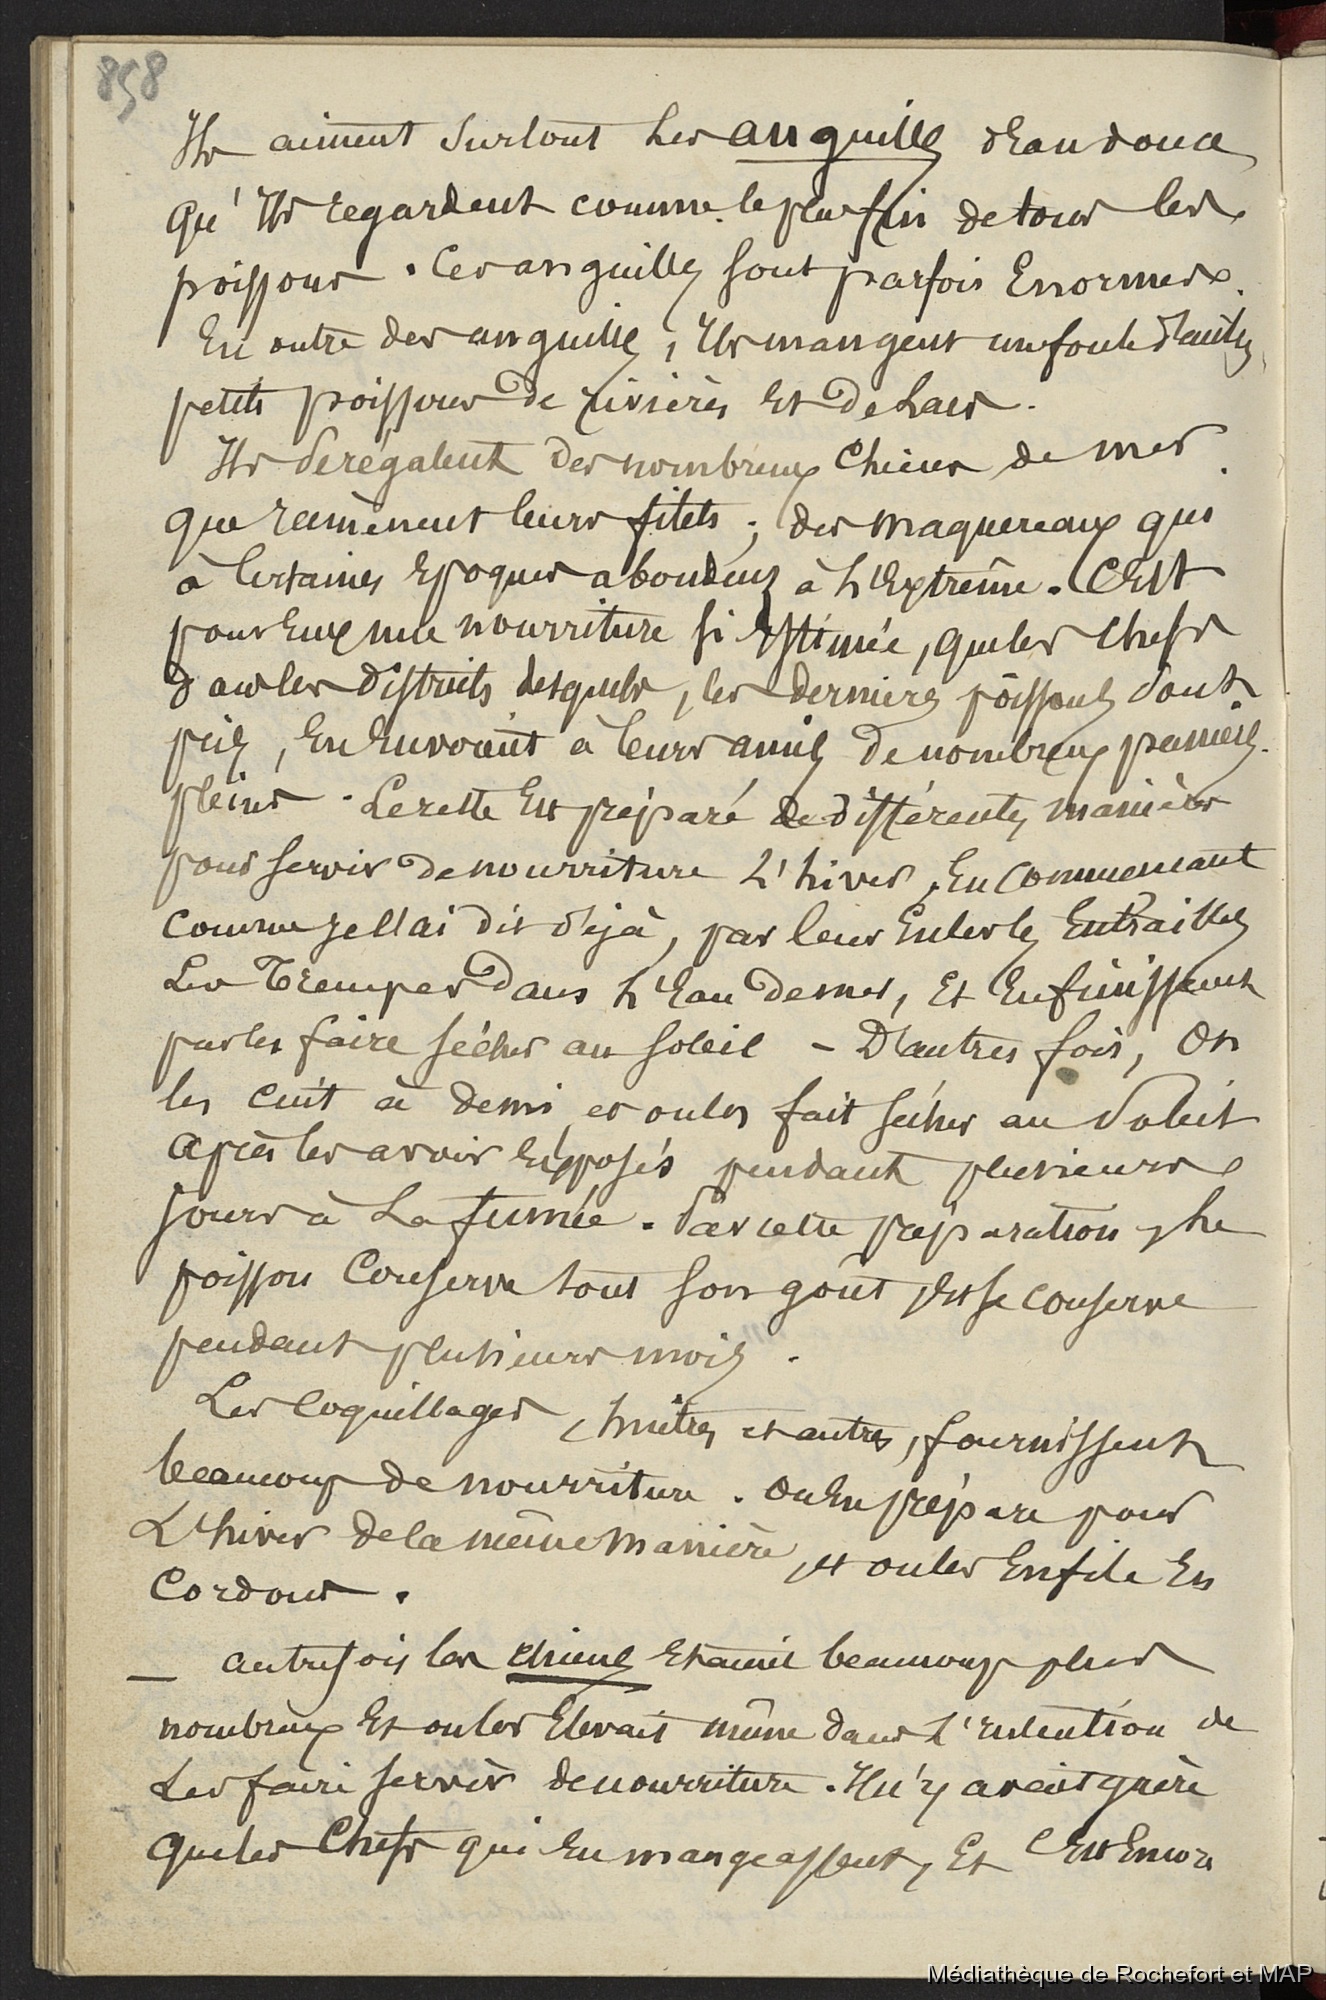 898
Ils aiment surtout les anguilles d'Eau douce
qu'Ils regardent comme le plus fin de tous les
poissons. Ces anguilles sont parfois Enormes.
En outre des anguilles, Ils mangent une foule d'autres
petits poissons de rivières Et de Lacs.
Ils se régalent des nombreux Chiens de mer
que ramènent leurs filets; des maquereaux qui
à Certaines Epoques abondent à L'Extrême. C'Est
pour Eux une nourriture si Estimée, que les Chefs
dans les districts desquels, les derniers poissons sont
pris, En Envoient à leurs amis de nombreux paniers
pleins. Le reste Est préparé de différentes manières
pour servir de nourriture L'hiver, En Commencant
Comme je l'ai dit déjà, par leur Enlever les Entrailles
Les Tremper dans L'Eau de mer, Et En finissant
par les faire sécher au soleil – D'autres fois, On
les cuit à demi, et on les fait sécher au Soleil
Après les avoir Exposés pendant plusieurs
jours à La fumée. Par cette préparation, Le
poisson Conserve tout son goût, Et se conserve
pendant plusieurs mois.
Les Coquillages, huîtres et autres, fournissent
beaucoup de nourriture. On En prépare pour
L'hiver de la même Manière, et on les Enfile En
Cordons.
— autrefois les chiens Etaient beaucoup plus
nombreux Et on les Elevait même dans L'intention de
Les faire servir de nourriture. Il n'y avait guère
que les Chefs qui En mangeassent, Et C'Est Encore
Médiathèque de Rochefort et MAP